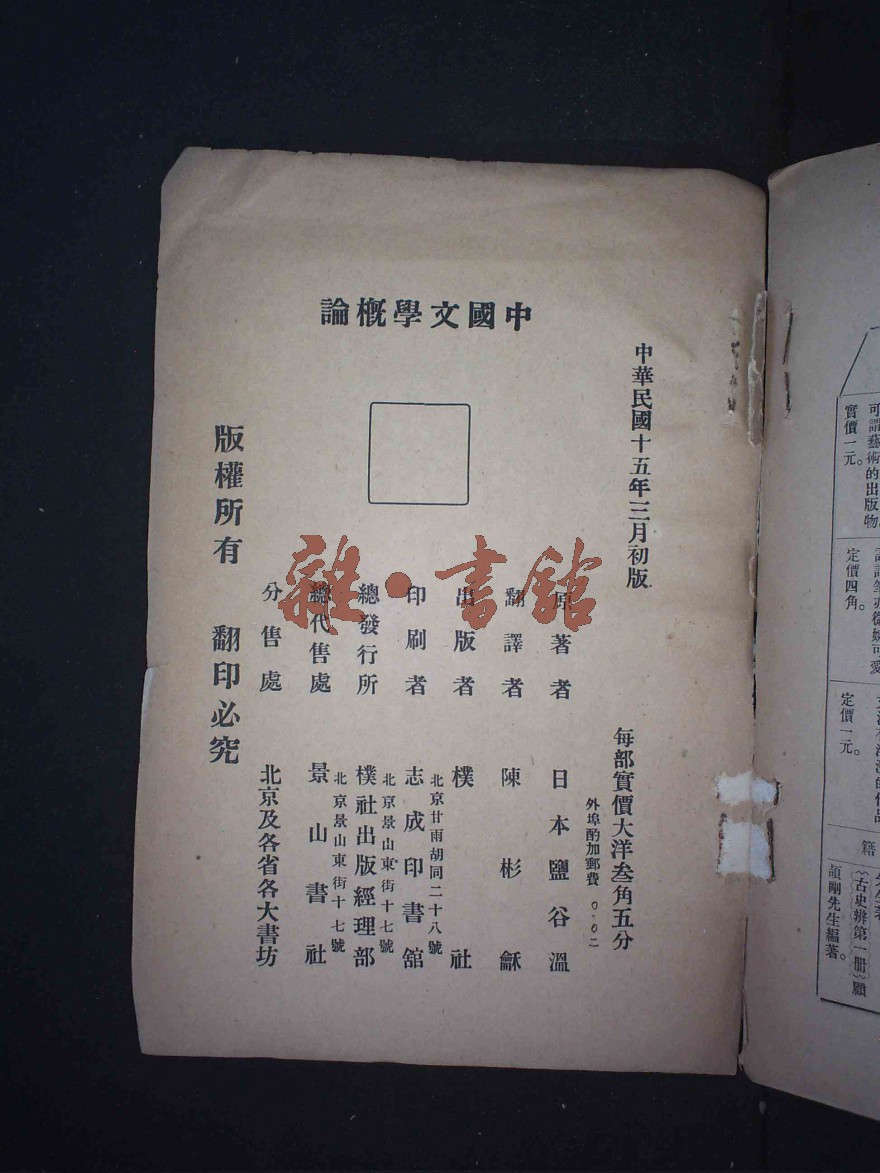 中國文學概論
中華民國十五年三月初版
每部實價大洋叁角五分
外埠酌加郵費 〇·〇二
原著者 日本鹽谷溫
翻譯者 陳彬龢
出版者 樸社
北京甘雨胡同二十八號
印刷者 志成印書館
北京景山東街十七號
總發行所 樸社出版經理部
北京景山東街十七號
總代售處 景山書社
分售處 北京及各省各大書坊
版權所有 翻印必究
雜·書館
可謂藝術的出版物。
實價一元。
定價四角。
定價一元。
籍
《古史辨第一册》顧
頡剛先生編著。